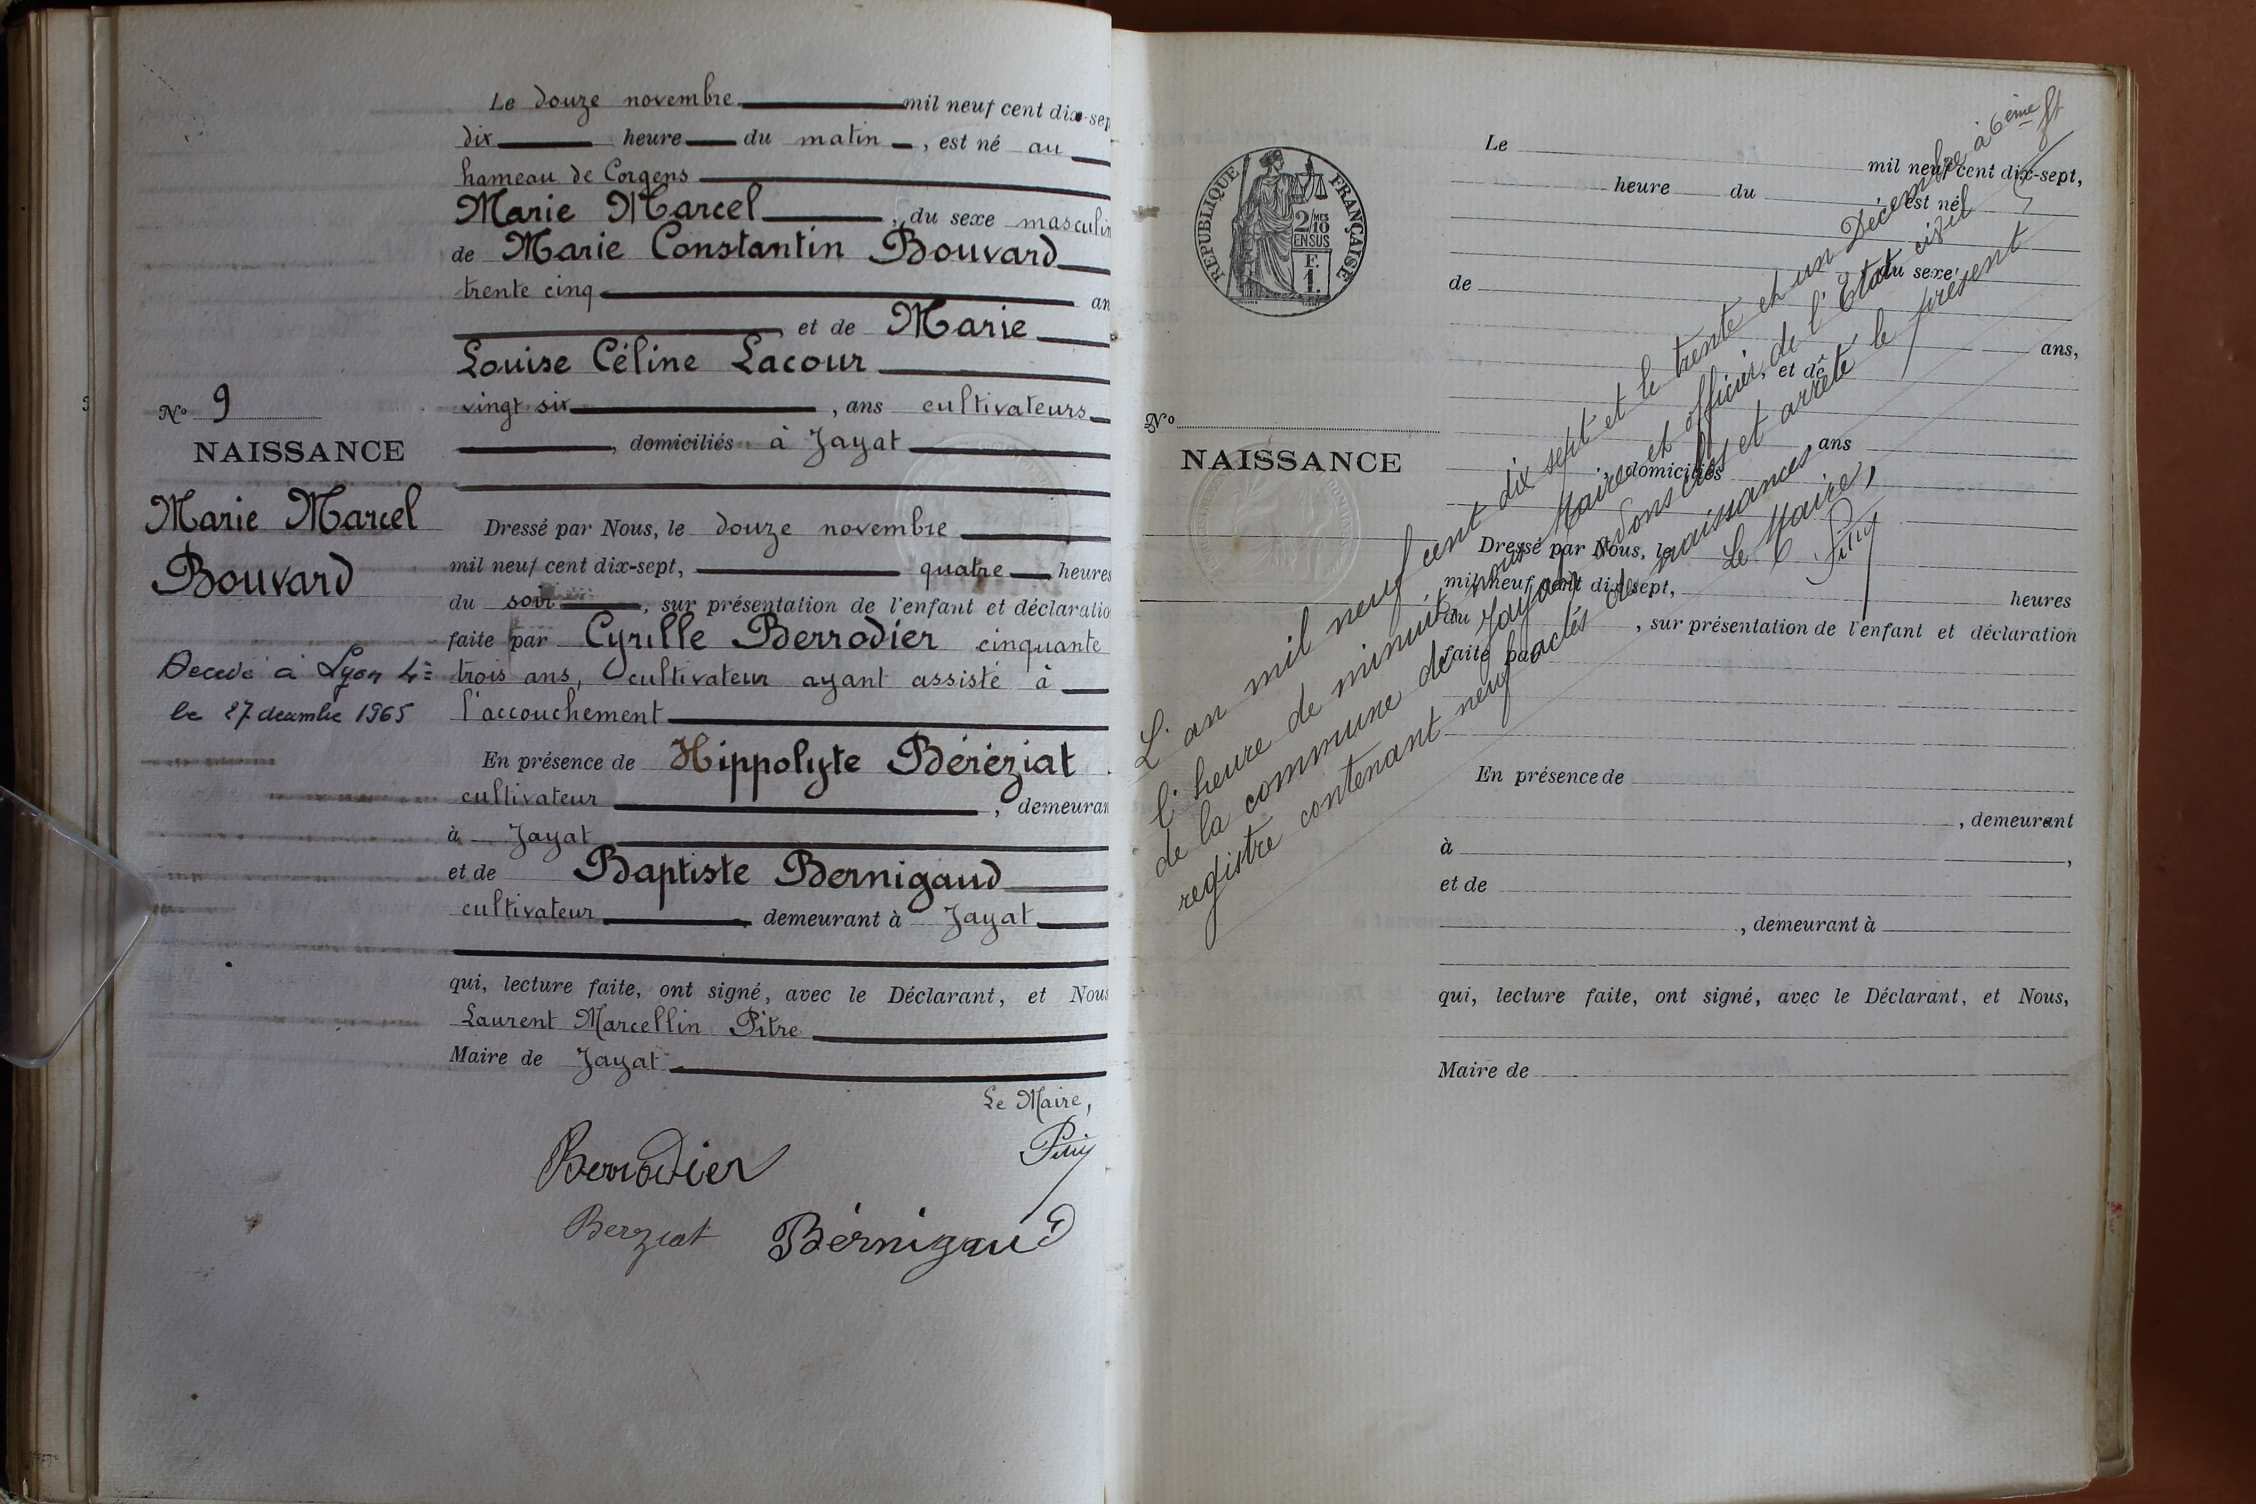 Le douze novembre mil neuf cent dix-sep
dix heure du matin, est né au
hameau de Corgens
Marie Marcel, du sexe masculin
de Marie Constantin Bouvard
trente cinq an
et de Marie
Louise Céline Lacour
vingt six, ans cultivateurs
, domiciliés à Jayat
N° 9
NAISSANCE
Marie Marcel
Bouvard
Décédé à Lyon 4e
le 27 décembre 1965
Dressé par Nous, le douze novembre
mil neuf cent dix-sept, quatre heures
du soir, sur présentation de l'enfant et déclaratio
faite par Cyrille Berrodier cinquante
trois ans, cultivateur ayant assisté à
l'accouchement
En présence de Hippolyte Béréziat
cultivateur, demeuran
à Jayat
et de Baptiste Bernigaud
cultivateur demeurant à Jayat
qui, lecture faite, ont signé, avec le Déclarant, et Nous
Laurent Marcellin Pitre
Maire de Jayat
Le Maire,
Berrodier
Berziat Bernigaud
RÉPUBLIQUE FRANÇAISE
2/10 MES
EN SUS
F.
1.
Le mil neuf cent dix-sept,
heure du est né
du sexe
de
ans,
et de
ans
, domiciliés
N°
NAISSANCE
Dressé par Nous, le
mil neuf cent dix-sept, heures
du , sur présentation de l'enfant et déclaration
faite par
En présence de
, demeurant
à ,
et de
, demeurant à
qui, lecture faite, ont signé, avec le Déclarant, et Nous,
Maire de
L'an mil neuf cent dix sept et le trente et un Décembre à 6ème
l'heure de minuit nous Maire et officier de l'Etat civil
de la commune de Jayat avons clos et arrêté le présent
registre contenant neuf actes de naissances
Le Maire,